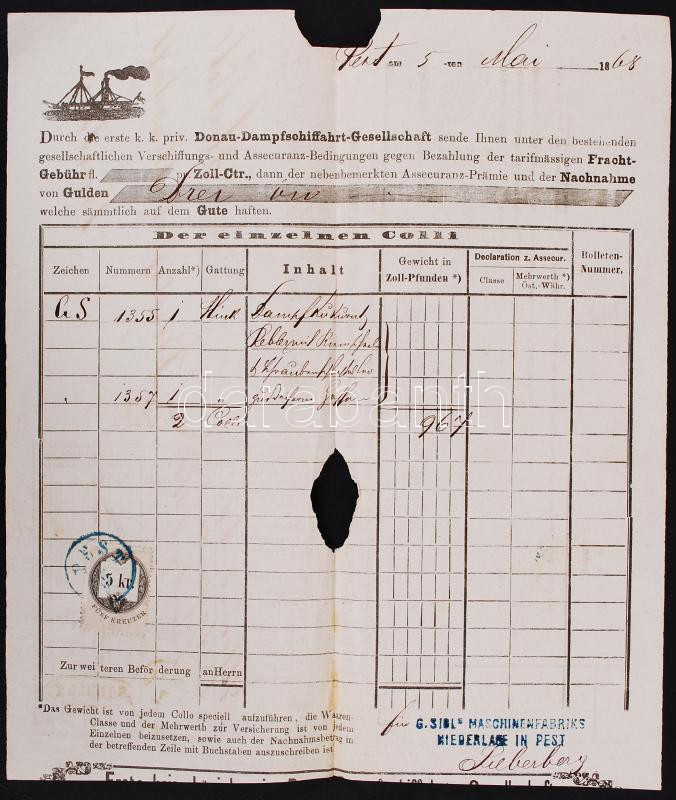 Pest am 5 ten Mai 1868
Durch die erste k. k. priv. Donau-Dampfschiffahrt-Gesellschaft sende Ihnen unter den bestehenden
gesellschaftlichen Verschiffungs- und Assecuranz-Bedingungen gegen Bezahlung der tarifmässigen Fracht-
Gebühr fl. pr Zoll-Ctr., dann der nebenbemerkten Assecuranz-Prämie und der Nachnahme
von Gulden Drei
welche sämmtlich auf dem Gute haften.
Der einzelnen Colli
Zeichen Nummern Anzahl*) Gattung Inhalt Gewicht in Zoll-Pfunden *) Declaration z. Assecur. Classe Mehrwerth *) Öst.-Währ. Bolleten-Nummer.
GS 1355 1 Stück
1357 1 "
2 Colli 967
darabanth
PEST
5 kr.
FÜNF KREUZER
Zur weiteren Beförderung an Herrn
*Das Gewicht ist von jedem Collo speciell aufzuführen, die Waaren-
Classe und der Mehrwerth zur Versicherung ist von jedem
Einzelnen beizusetzen, sowie auch der Nachnahmsbetrag in
der betreffenden Zeile mit Buchstaben auszuschreiben ist.
für G. SIGLs MASCHINENFABRIKS
NIEDERLAGE IN PEST
Lieberberg